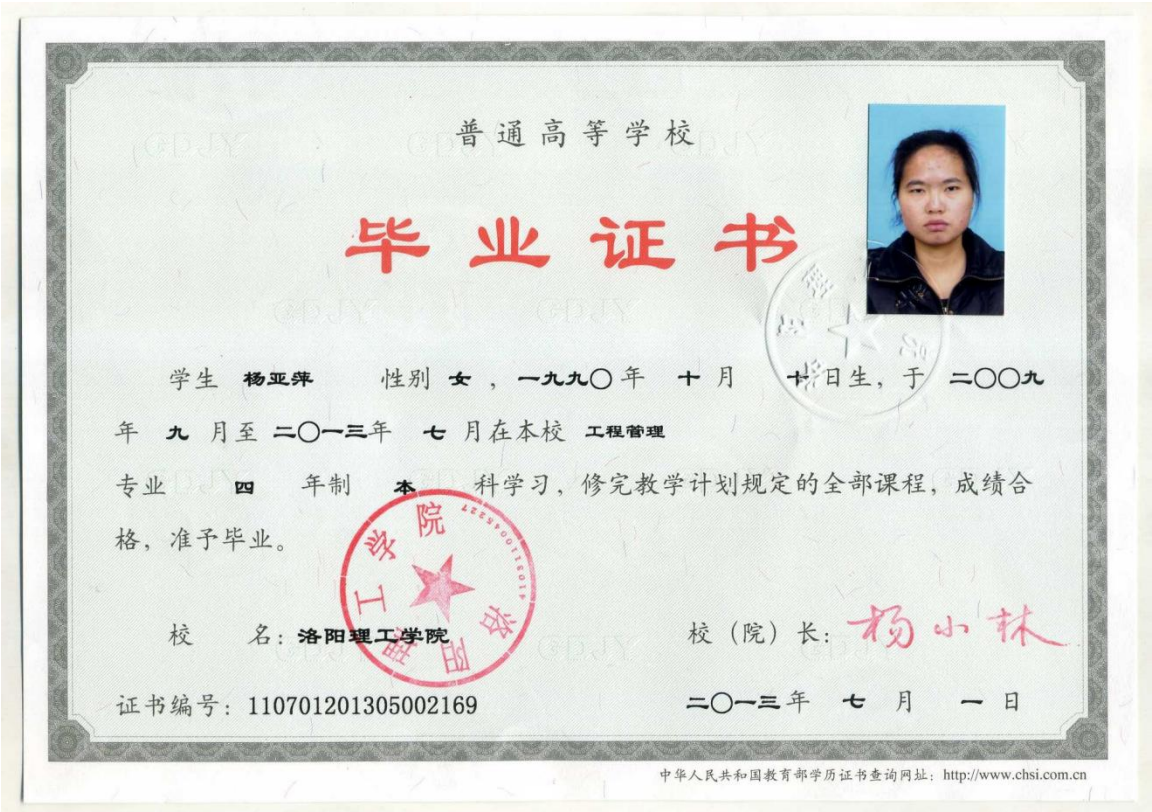 普通高等学校
毕业证书
学生 杨亚萍 性别 女 ，一九九〇年 十 月 日生，于 二〇〇九
年 九 月至 二〇一三年 七 月在本校 工程管理
专业 四 年制 本 科学习，修完教学计划规定的全部课程，成绩合
格，准予毕业。
洛阳理工学院
4103110045227
校 名：洛阳理工学院 校（院）长：杨小林
证书编号：110701201305002169 二〇一三年 七 月 一 日
中华人民共和国教育部学历证书查询网址：http://www.chsi.com.cn